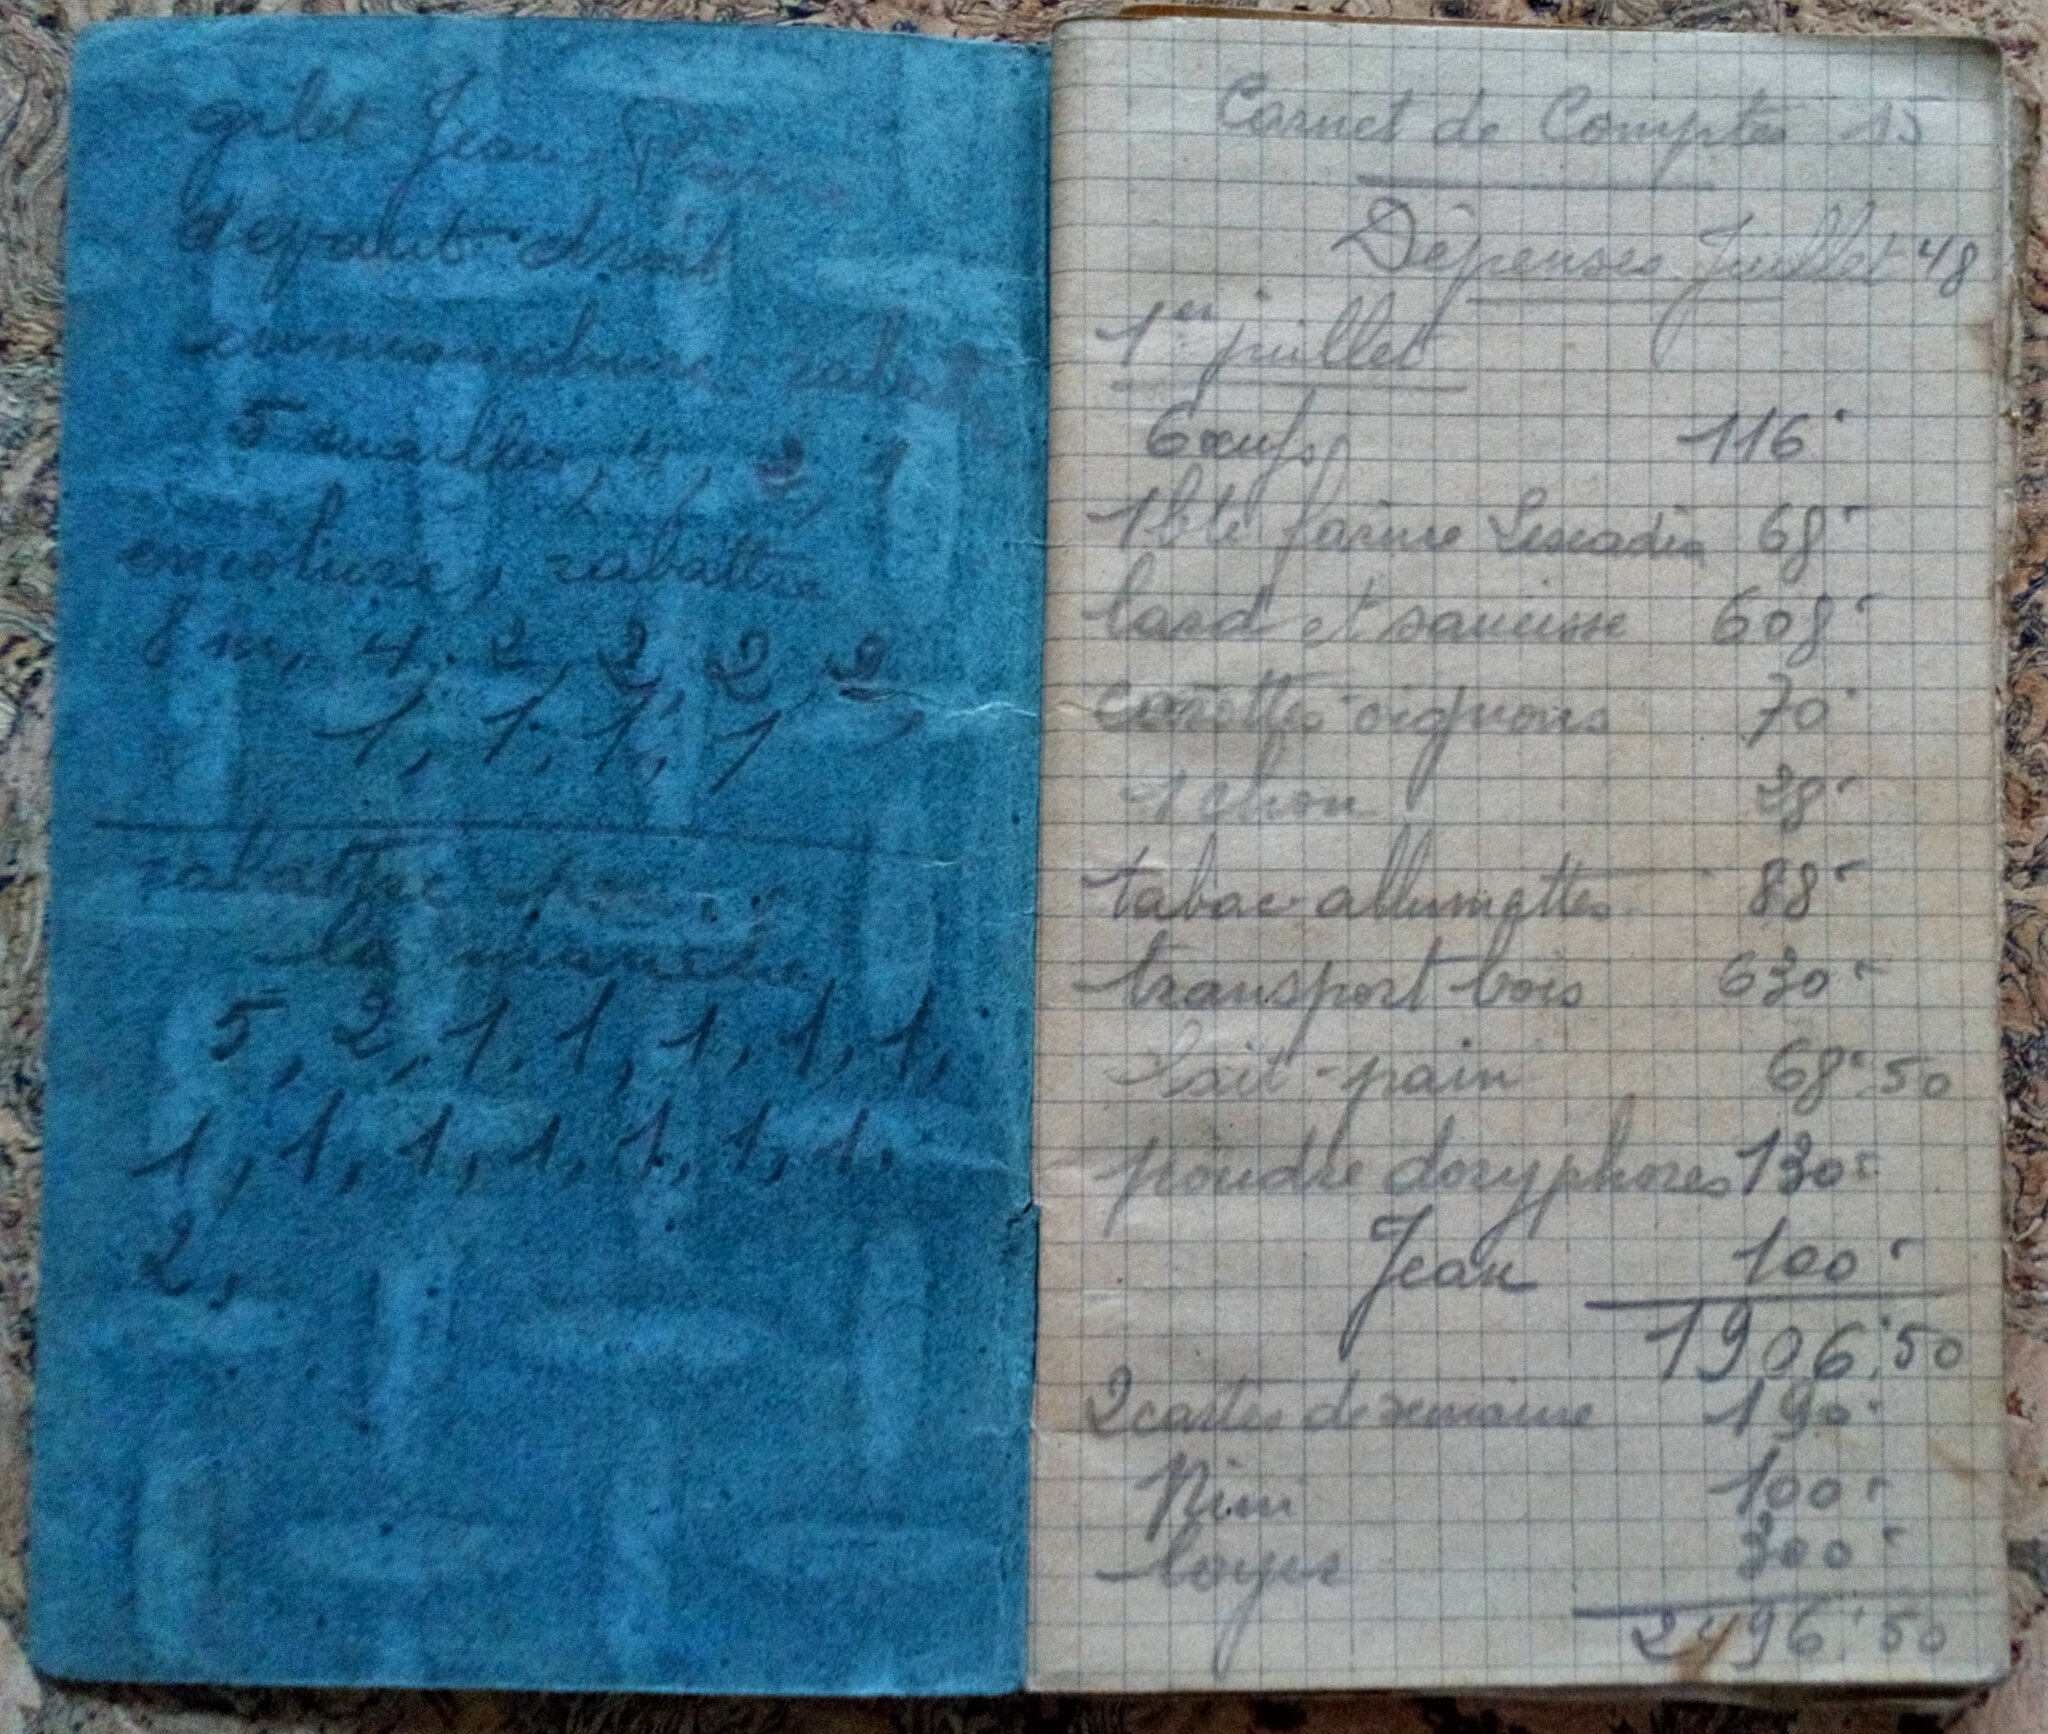 gilet Jean Pierre
devant droit
emmanchure rabat
5 mailles, 
2, 1, 2, 1
encolure, rabattre
8 m, 4, 2, 2, 2, 2,
1, 1, 1, 1
rabattre pour
les manches
5, 2, 1, 1, 1, 1, 1,
1, 1, 1, 1, 1, 1, 1,
2,
Carnet de Comptes 15
Dépenses Juillet 48
1er juillet
6 œufs 116
1 bte farine 68
lard et saucisse 608
carottes oignons 70
1 chou 28
tabac allumettes 88
transport bois 630
lait - pain 68.50
poudre doryphores 130
Jean 100
1906.50
2 cartes de semaine 190
Nini 100
loyer 300
2496.50